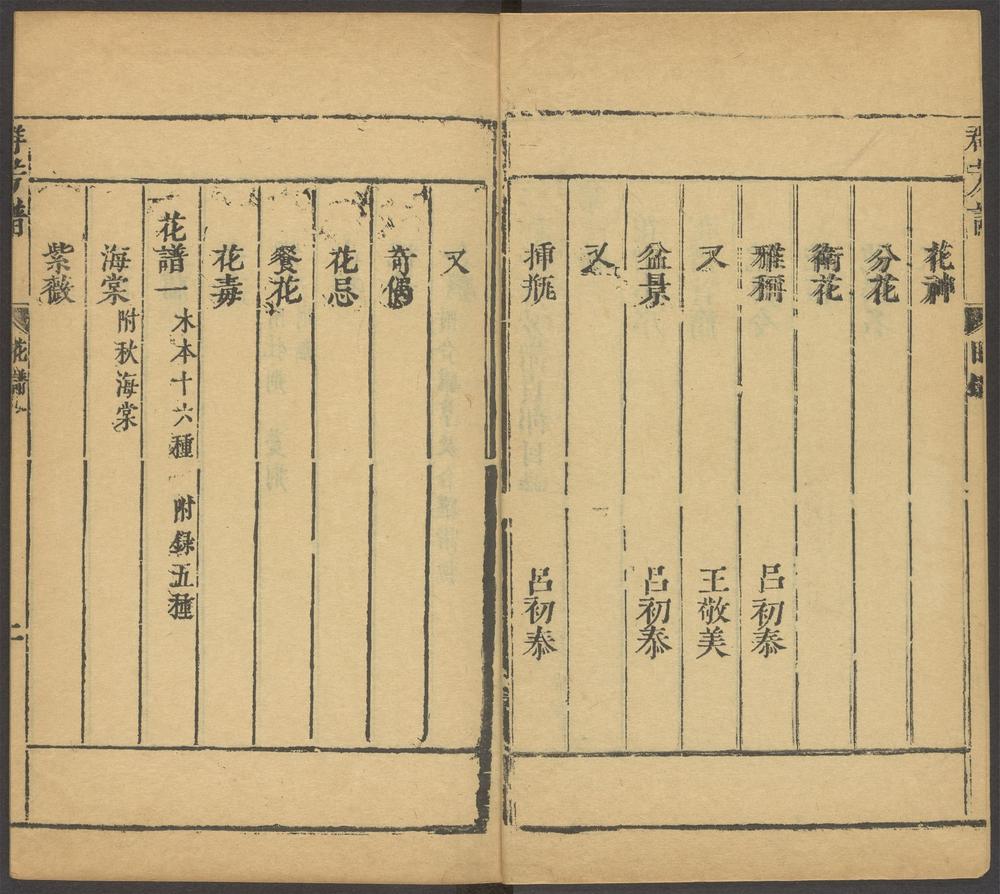 花神
分花
衛花
雅稱 呂初泰
又 王敬美
盆景 呂初泰
又
揷瓶 呂初泰
又
奇偶
花忌
餐花
花毒
花譜一 木本十六種 附録五種
海棠 附秋海棠
紫薇
群芳譜 花譜 二